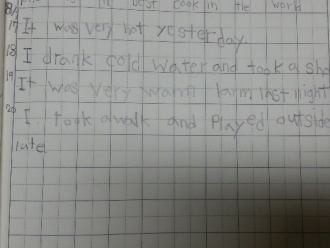 is the best cook in the world
17 It was very hot yesterday.
18 I drank cold water and took a sho
19 It was very warm last night
20 I took a walk and played outside
late